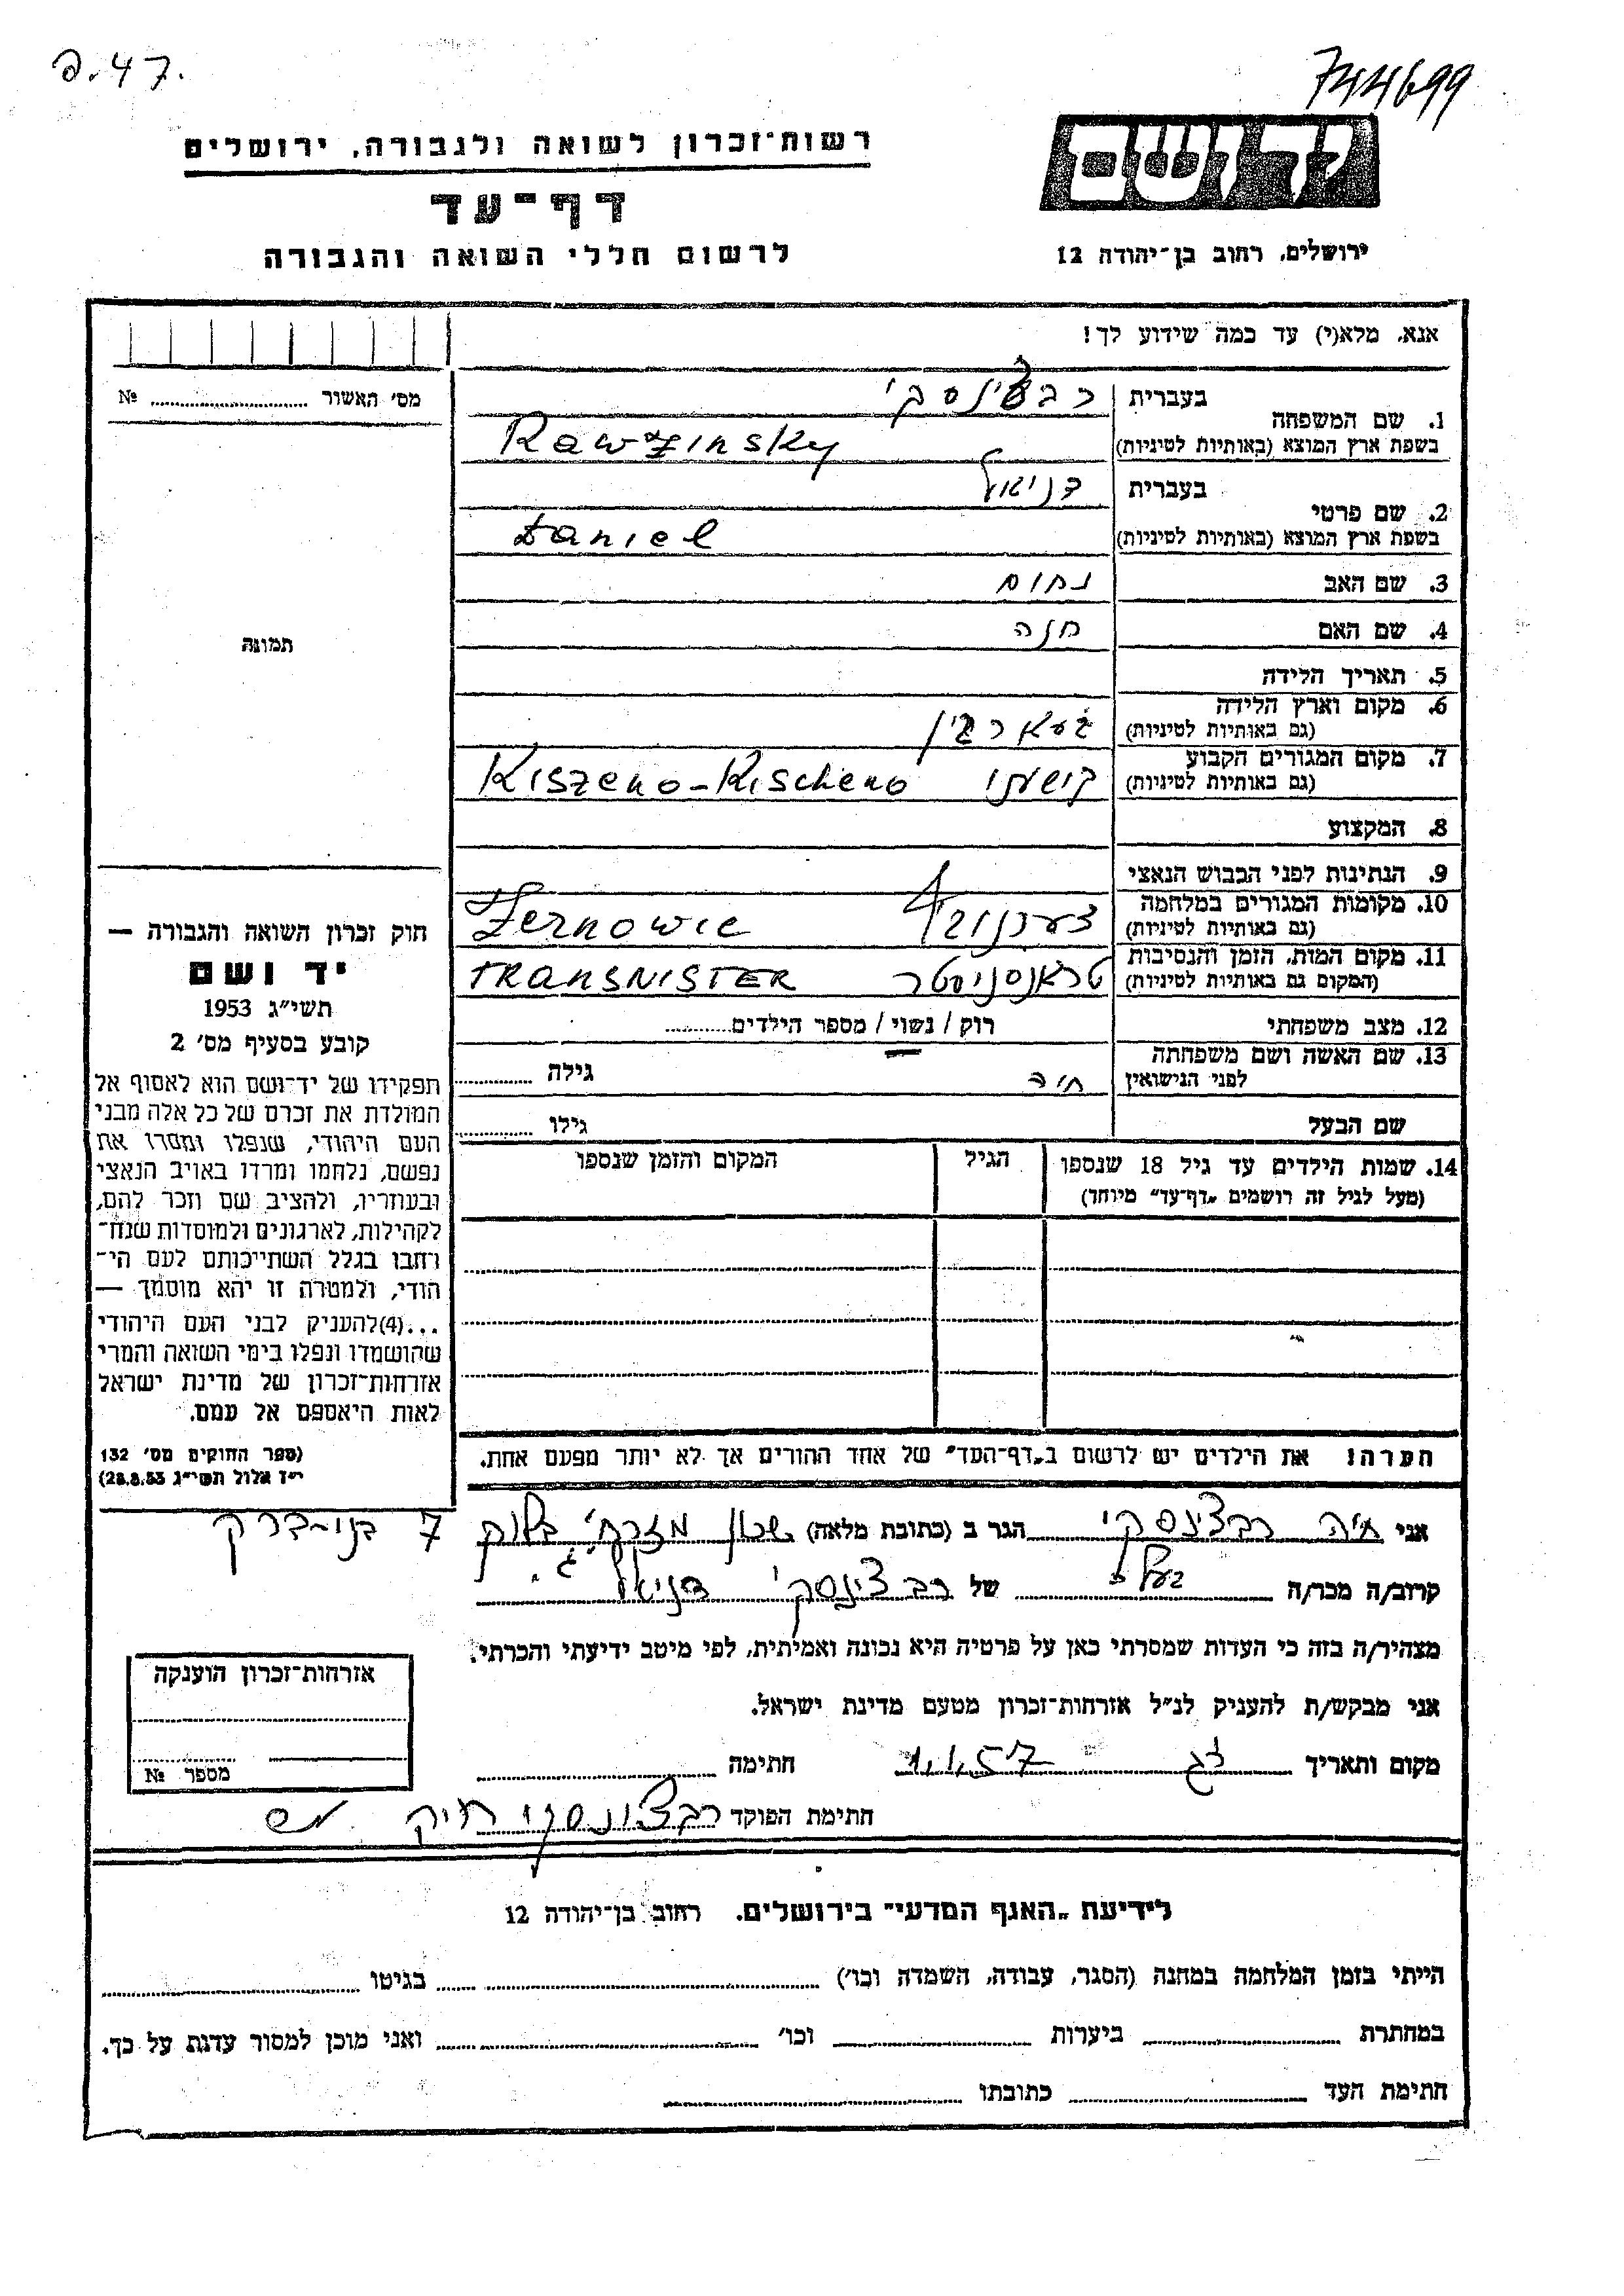 פ. 47.
744699
רשות־זכרון לשואה ולגבורה, ירושלים
דף־עד
לרשום חללי השואה והגבורה
יד ושם
ירושלים, רחוב בן־יהודה 12
אנא, מלא(י) עד כמה שידוע לך!
מס׳ האשור № 
1. שם המשפחה
בעברית רבצינסקי
בשפת ארץ המוצא (באותיות לטיניות) Rawzinsky
2. שם פרטי
בעברית דניאל
בשפת ארץ המוצא (באותיות לטיניות) Daniel
3. שם האב נחום
4. שם האם חנה
5. תאריך הלידה
6. מקום וארץ הלידה
(גם באותיות לטיניות)
7. מקום המגורים הקבוע
(גם באותיות לטיניות) קישענו Kiszeno-Kischeno
8. המקצוע
9. הנתינות לפני הכבוש הנאצי
10. מקומות המגורים במלחמה
(גם באותיות לטיניות) Zernowic
11. מקום המות, הזמן והנסיבות
(המקום גם באותיות לטיניות) טראנסניסטר TRANSNISTER
12. מצב משפחתי רוק / נשוי / מספר הילדים
13. שם האשה ושם משפחתה
לפני הנישואין חיה גילה
שם הבעל גילו
14. שמות הילדים עד גיל 18 שנספו
(מעל לגיל זה רושמים „דף־עד״ מיוחד)
הגיל
המקום והזמן שנספו
תמונה
חוק זכרון השואה והגבורה —
יד ושם
תשי״ג 1953
קובע בסעיף מס׳ 2
תפקידו של יד־ושם הוא לאסוף אל
המולדת את זכרם של כל אלה מבני
העם היהודי, שנפלו ומסרו את
נפשם, נלחמו ומרדו באויב הנאצי
ובעוזריו, ולהציב שם וזכר להם,
לקהילות, לארגונים ולמוסדות שנח־
רחבו בגלל השתייכותם לעם הי־
הודי, ולמטרה זו יהא מוסמך —
...(4)להעניק לבני העם היהודי
שהושמדו ונפלו בימי השואה והמרי
אזרחות־זכרון של מדינת ישראל
לאות היאספם אל עמם.
(ספר החוקים מס׳ 132
י״ז אלול תשי״ג 28.8.53)
הערה! את הילדים יש לרשום ב„דף־העד״ של אחד ההורים אך לא יותר מפעם אחת.
אני חיה רבצינסקי הגר ב (כתובת מלאה) שכון מזרחי בלוק 7 בני-ברק
קרוב/ה מכר/ה בעלי של רבצינסקי דניאל
מצהיר/ה בזה כי העדות שמסרתי כאן על פרטיה היא נכונה ואמיתית, לפי מיטב ידיעתי והכרתי.
אני מבקש/ת להעניק לנ״ל אזרחות־זכרון מטעם מדינת ישראל.
מקום ותאריך 1.1.57 חתימה
חתימת הפוקד
אזרחות־זכרון הוענקה
מספר №
לידיעת „האגף המדעי״ בירושלים, רחוב בן־יהודה 12
הייתי בזמן המלחמה במחנה (הסגר, עבודה, השמדה וכו׳) בגיטו
במחתרת ביערות וכו׳ ואני מוכן למסור עדות על כך.
חתימת העד כתובתו